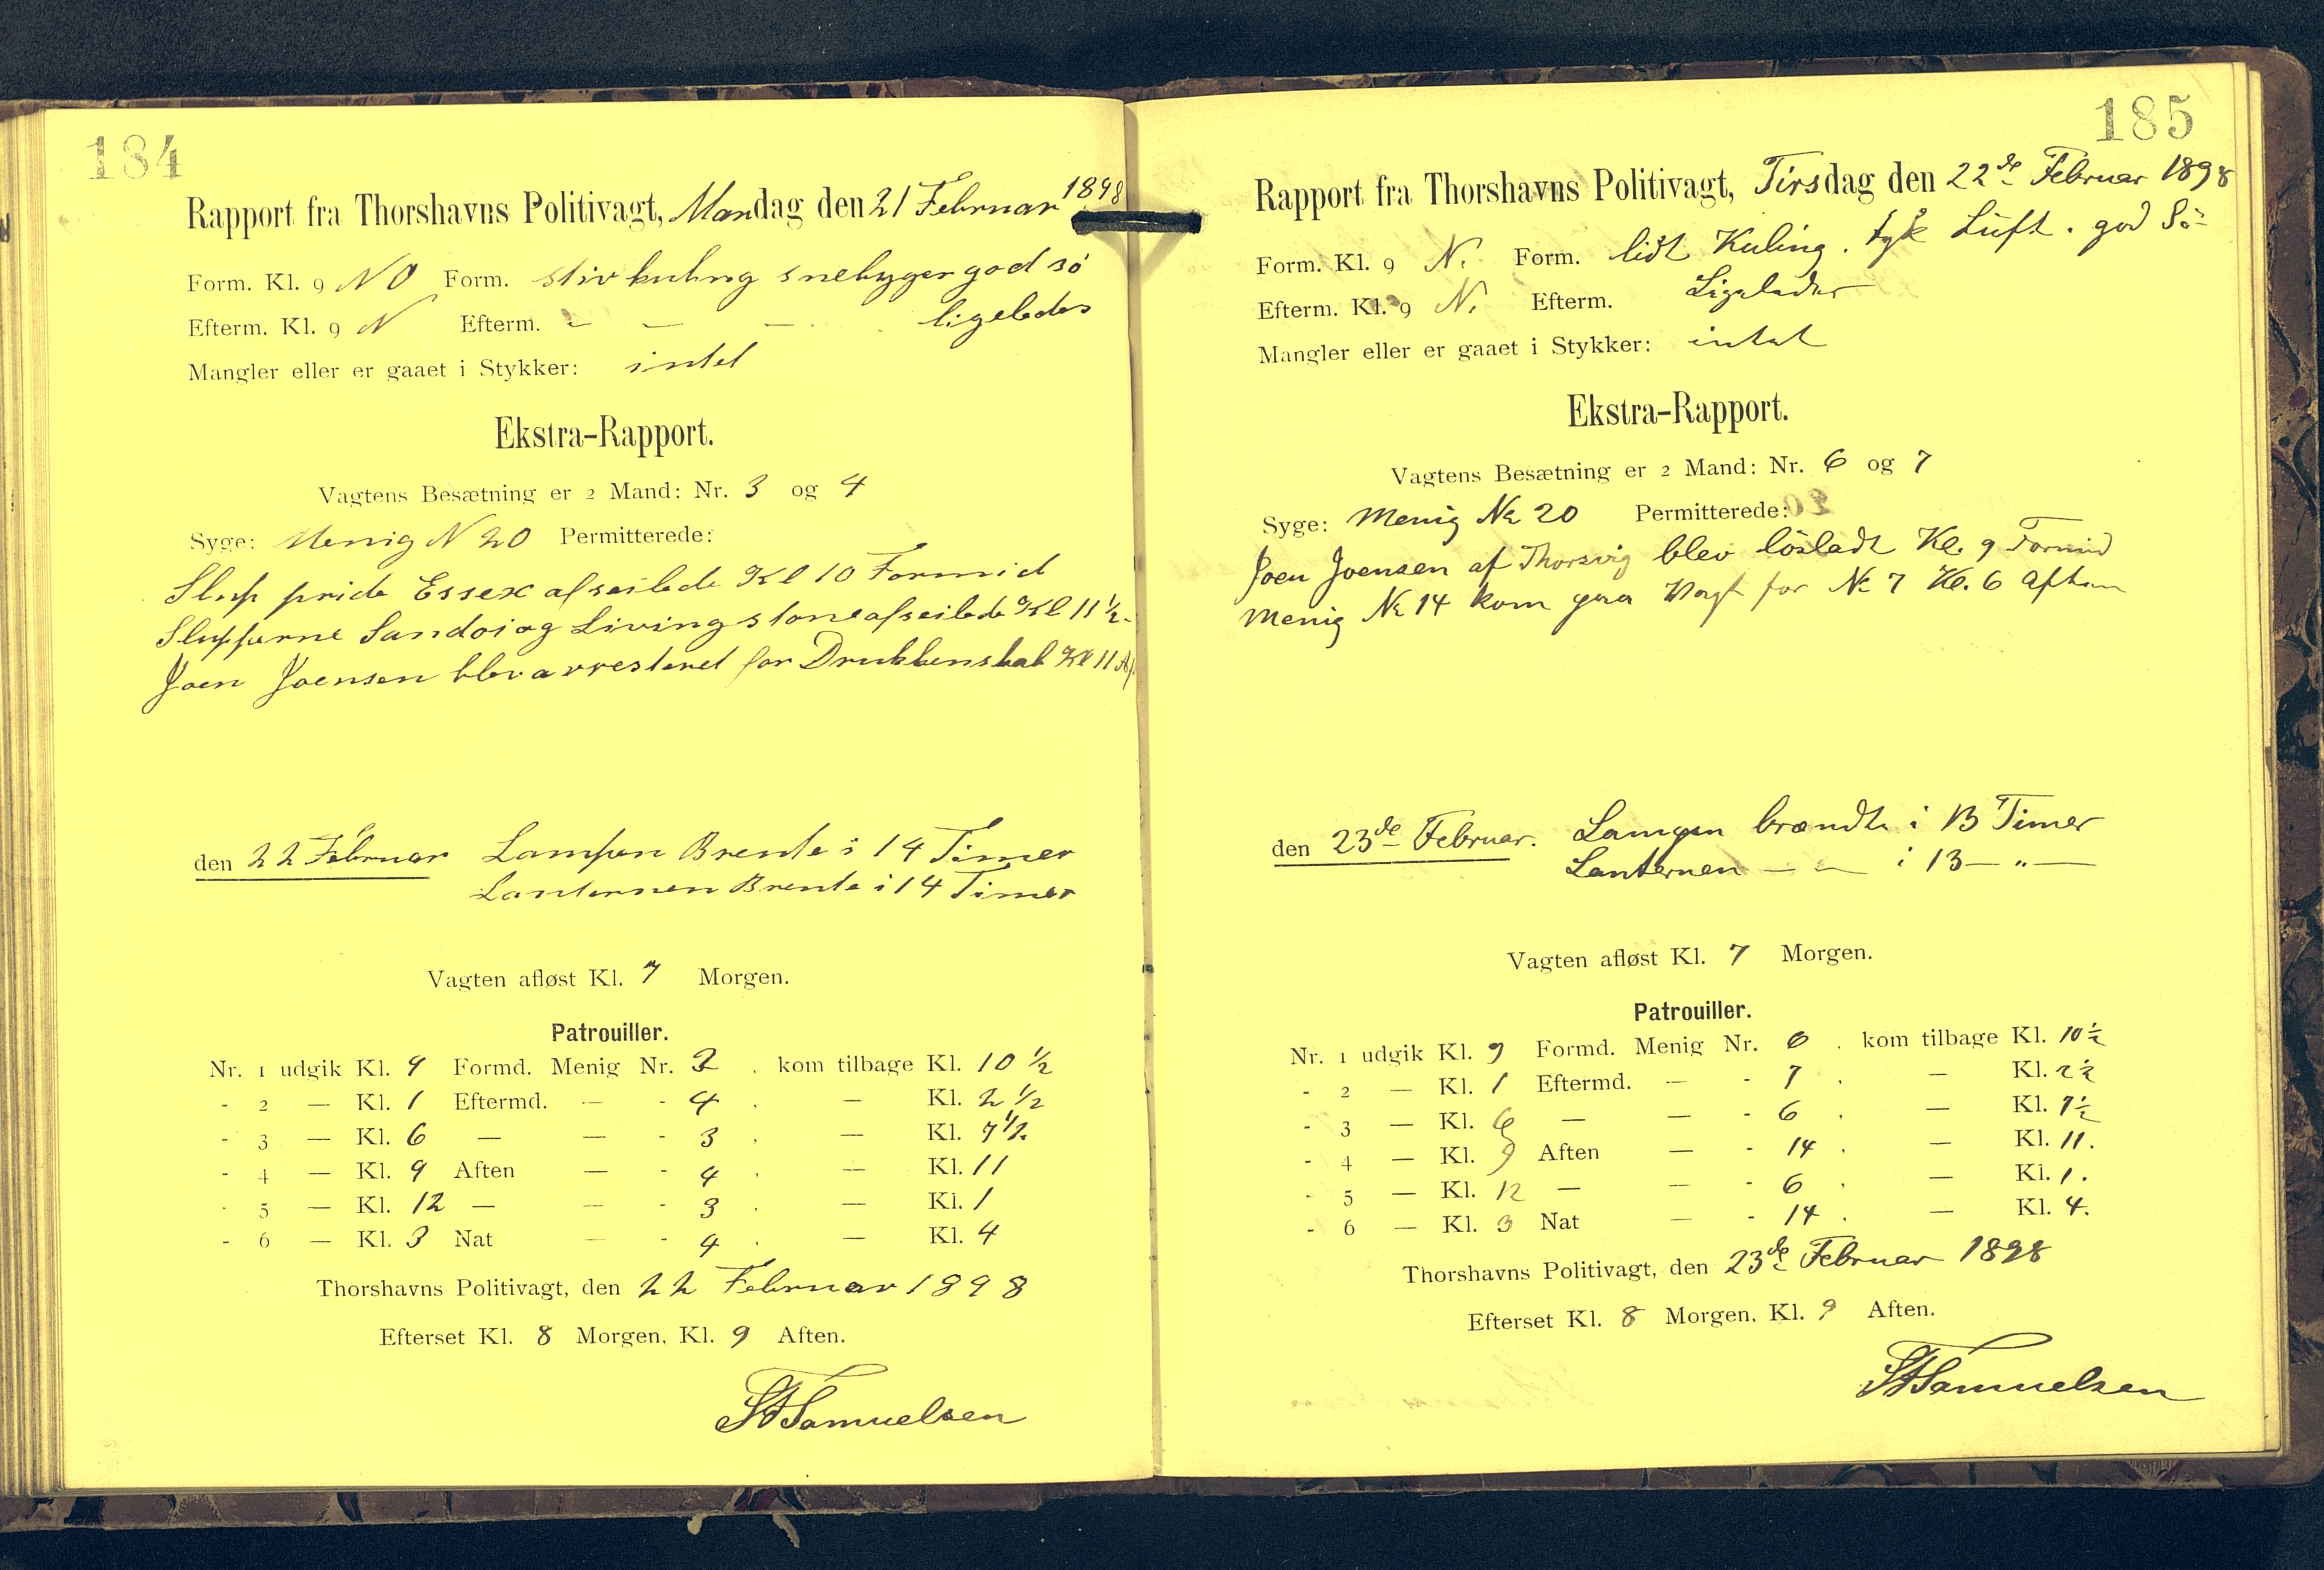 184
Rapport fra Thorshavns Politivagt, Mandag den 21 Februar 1898
Form. Kl. 9 NO Form. stiv kuling snebyger god sö
Efterm. Kl. 9 N Efterm. - - - ligeledes
Mangler eller er gaaet i Stykker: intet
Ekstra-Rapport.
Vagtens Besætning er 2 Mand: Nr. 3 og 4
Syge: Menig N 20 Permitterede:
Slup pride Essex afseilede Kl 10 Formid
Slupperne Sandoi og Livingstone afseilede Kl 11 ½.
Joen Joensen blev arresteret for Drukkenskab Kl 11 Af.
den 22 Februar Lampen Brente i 14 Timer
Lanternen Brente i 14 Timer
Vagten afløst Kl. 7 Morgen.
Patrouiller.
Nr. 1 udgik Kl. 9 Formd. Menig Nr. 3 . kom tilbage Kl. 10 ½
- 2 — Kl. 1 Eftermd. — - 4 . — Kl. 2 ½
- 3 — Kl. 6 — — - 3 . — Kl. 7 ½
- 4 — Kl. 9 Aften — - 4 . — Kl. 11
- 5 — Kl. 12 — — - 3 . — Kl. 1
- 6 — Kl. 3 Nat — - 4 . — Kl. 4
Thorshavns Politivagt, den 22 Februar 1898
Efterset Kl. 8 Morgen, Kl. 9 Aften.
Samuelsen
185
Rapport fra Thorshavns Politivagt, Tirsdag den 22de Februar 1898
Form. Kl. 9 N. Form. lidt Kuling. tyk Luft. god Sö-
Efterm. Kl. 9 N. Efterm. Ligeledes
Mangler eller er gaaet i Stykker: intet
Ekstra-Rapport.
Vagtens Besætning er 2 Mand: Nr. 6 og 7
Syge: Menig No 20 Permitterede:
Joen Joensen af Thorsvig blev lösladt Kl. 9 Formid
Menig No 14 kom paa Vagt for No 7 Kl. 6 Aften
den 23de Februar. Lampen brændte i 13 Timer
Lanternen — — i 13 — " —
Vagten afløst Kl. 7 Morgen.
Patrouiller.
Nr. 1 udgik Kl. 9 Formd. Menig Nr. 6 . kom tilbage Kl. 10 ½
- 2 — Kl. 1 Eftermd. — - 7 . — Kl. 2 ½
- 3 — Kl. 6 — — - 6 . — Kl. 7 ½
- 4 — Kl. 9 Aften — - 14 . — Kl. 11.
- 5 — Kl. 12 — — - 6 . — Kl. 1.
- 6 — Kl. 3 Nat — - 14 . — Kl. 4.
Thorshavns Politivagt, den 23de Februar 1898
Efterset Kl. 8 Morgen, Kl. 9 Aften.
Samuelsen